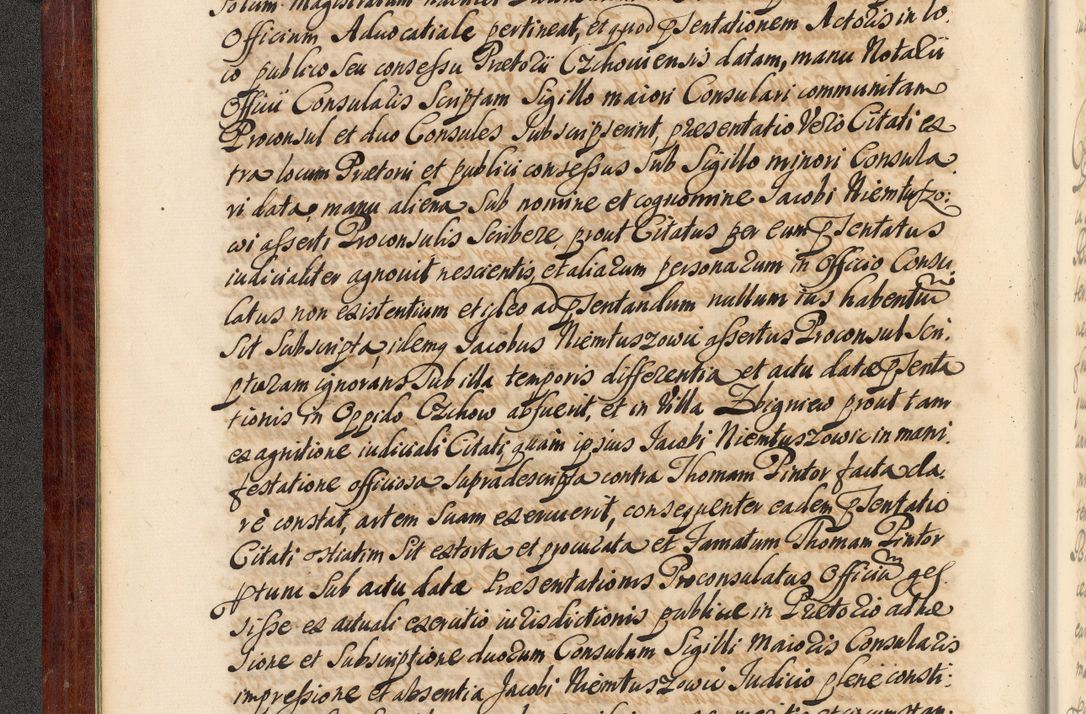 solum Magistratum
Officium Aduocatiale pertineat, et quod pſentationem Actoris in lo.
co publico seu consessu Prætorii Czchoviensis datam, manu Notarii
Officii Consularis Scriptam Sigillo maiori Consulari communitam
Proconsul et duo Consules Subscripserint, præsentatio Vero Citati ex
tra locum Prætorii et publici consessus Sub Sigillo minori Consula
ri data, manu aliena Sub nomine et cognomine Jacobi Niemtuszo:
wi asserti Proconsulis Scribere, prout Citatus per eum pſentatus
iudicialiter agnovit nescientis, et aliarum personarum in Officio Consu
latus non existentium et ideo ad pſentandum nullum ius habentium
Sit Subscripta, idemq Jacobus Niemtuszowic assertus Proconsul Scri.
pturam ignorans Sub illa temporis differentia et actu datæ pſenta
tionis in Oppido Czchow abfuerit, et in Villa Zbigniew prout tam
ex agnitione iudiciali Citati, quam ipsius Jacobi Niemtuszowic in mani.
festatione officiosa Supradescripta contra Thomam Pintor facta cla.
rè constat, artem Suam exercuerit, consequenter eadem pſentatio
Citati Sit extorta et procurata et Famatum Thomam Pintor
ptunc Sub actu datæ Præsentationis Proconsulatus Officium ges
sisse ex actuali exercitio iurisdictionis publicæ in Prætorio adhæ
sione et Subscriptione duorum Consulum Sigilli Maioris Consularis
impressione et absentia Jacobi Niemtuszowic Judicio plene consti: